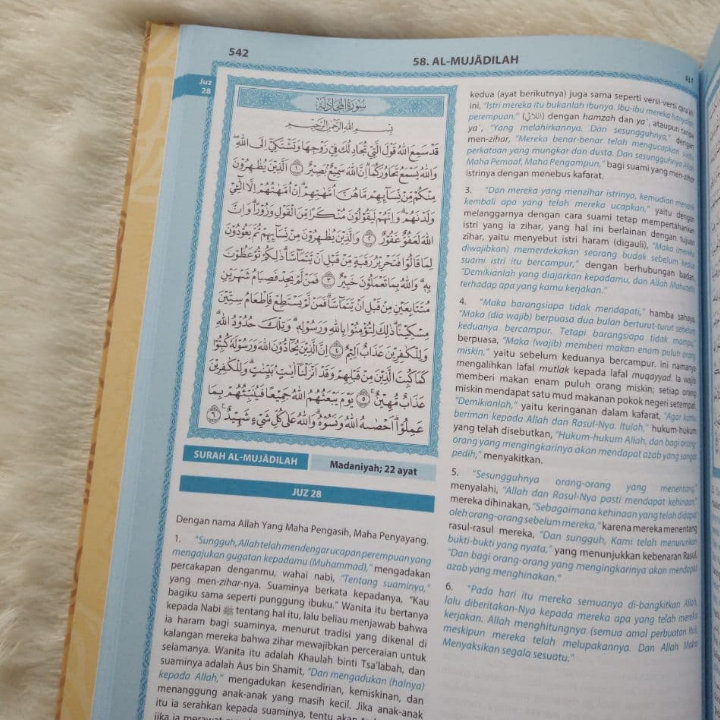 542
58. AL-MUJĀDILAH
Juz
28
سُوْرَةُ الْمُجَادِلَةِ
بِسْمِ اللّٰهِ الرَّحْمٰنِ الرَّحِيْمِ
قَدْ سَمِعَ اللّٰهُ قَوْلَ الَّتِيْ تُجَادِلُكَ فِيْ زَوْجِهَا وَتَشْتَكِيْٓ اِلَى اللّٰهِ
وَاللّٰهُ يَسْمَعُ تَحَاوُرَكُمَاۗ اِنَّ اللّٰهَ سَمِيْعٌۢ بَصِيْرٌ ١ اَلَّذِيْنَ يُظٰهِرُوْنَ
مِنْكُمْ مِّنْ نِّسَاۤىِٕهِمْ مَّا هُنَّ اُمَّهٰتِهِمْۗ اِنْ اُمَّهٰتُهُمْ اِلَّا الّٰۤـِٔيْ
وَلَدْنَهُمْۗ وَاِنَّهُمْ لَيَقُوْلُوْنَ مُنْكَرًا مِّنَ الْقَوْلِ وَزُوْرًاۗ وَاِنَّ
اللّٰهَ لَعَفُوٌّ غَفُوْرٌ ٢ وَالَّذِيْنَ يُظٰهِرُوْنَ مِنْ نِّسَاۤىِٕهِمْ ثُمَّ يَعُوْدُوْنَ
لِمَا قَالُوْا فَتَحْرِيْرُ رَقَبَةٍ مِّنْ قَبْلِ اَنْ يَّتَمَاۤسَّاۗ ذٰلِكُمْ تُوْعَظُوْنَ
بِهٖۗ وَاللّٰهُ بِمَا تَعْمَلُوْنَ خَبِيْرٌ ٣ فَمَنْ لَّمْ يَجِدْ فَصِيَامُ شَهْرَيْنِ
مُتَتَابِعَيْنِ مِنْ قَبْلِ اَنْ يَّتَمَاۤسَّاۗ فَمَنْ لَّمْ يَسْتَطِعْ فَاِطْعَامُ سِتِّيْنَ
مِسْكِيْنًاۗ ذٰلِكَ لِتُؤْمِنُوْا بِاللّٰهِ وَرَسُوْلِهٖۗ وَتِلْكَ حُدُوْدُ اللّٰهِۗ
وَلِلْكٰفِرِيْنَ عَذَابٌ اَلِيْمٌ ٤ اِنَّ الَّذِيْنَ يُحَاۤدُّوْنَ اللّٰهَ وَرَسُوْلَهٗ كُبِتُوْا
كَمَا كُبِتَ الَّذِيْنَ مِنْ قَبْلِهِمْ وَقَدْ اَنْزَلْنَآ اٰيٰتٍۢ بَيِّنٰتٍۗ وَلِلْكٰفِرِيْنَ
عَذَابٌ مُّهِيْنٌ ٥ يَوْمَ يَبْعَثُهُمُ اللّٰهُ جَمِيْعًا فَيُنَبِّئُهُمْ بِمَا
عَمِلُوْاۗ اَحْصٰىهُ اللّٰهُ وَنَسُوْهُۗ وَاللّٰهُ عَلٰى كُلِّ شَيْءٍ شَهِيْدٌ ٦
SURAH AL-MUJĀDILAH
Madaniyah; 22 ayat
JUZ 28
Dengan nama Allah Yang Maha Pengasih, Maha Penyayang.
1. "Sungguh, Allah telah mendengar ucapan perempuan yang
mengajukan gugatan kepadamu (Muhammad)," mengadakan
percakapan denganmu, wahai nabi, "Tentang suaminya,"
yang men-zihar-nya. Suaminya berkata kepadanya, "Kau
bagiku sama seperti punggung ibuku." Wanita itu bertanya
kepada Nabi ﷺ tentang hal itu, lalu beliau menjawab bahwa
ia haram bagi suaminya, menurut tradisi yang dikenal di
kalangan mereka bahwa zihar mewajibkan perceraian untuk
selamanya. Wanita itu adalah Khaulah binti Tsa'labah, dan
suaminya adalah Aus bin Shamit, "Dan mengadukan (halnya)
kepada Allah," mengadukan kesendirian, kemiskinan, dan
menanggung anak-anak yang masih kecil. Jika anak-anak
itu ia serahkan kepada suaminya, tentu akan
jika ia merawat
kedua (ayat berikutnya) juga sama seperti versi-versi
ini, "Istri mereka itu bukanlah ibunya. Ibu-ibu mereka hanyalah
perempuan," (اللائي) dengan hamzah dan ya`, ataupun tanpa
ya`, "Yang melahirkannya. Dan sesungguhnya," dengan
men-zihar, "Mereka benar-benar telah mengucapkan
perkataan yang mungkar dan dusta. Dan sesungguhnya Allah
Maha Pemaaf, Maha Pengampun," bagi suami yang men-zihar
istrinya dengan menebus kafarat.
3. "Dan mereka yang menzihar istrinya, kemudian
kembali apa yang telah mereka ucapkan," yaitu dengan
melanggarnya dengan cara suami tetap mempertahankan
istri yang ia zihar, yang hal ini berlainan dengan tujuan
zihar, yaitu menyebut istri haram (digauli), "Maka (mereka
diwajibkan) memerdekakan seorang budak sebelum kedua
suami istri itu bercampur," dengan berhubungan badan.
"Demikianlah yang diajarkan kepadamu, dan Allah Mahateliti
terhadap apa yang kamu kerjakan."
4. "Maka barangsiapa tidak mendapati," hamba sahaya,
"Maka (dia wajib) berpuasa dua bulan berturut-turut sebelum
keduanya bercampur. Tetapi barangsiapa tidak mampu,"
berpuasa, "Maka (wajib) memberi makan enam puluh orang
miskin," yaitu sebelum keduanya bercampur. Ini namanya
mengalihkan lafal mutlak kepada lafal muqayyad. Ia wajib
memberi makan enam puluh orang miskin; setiap orang
miskin mendapat satu mud makanan pokok negeri setempat.
"Demikianlah," yaitu keringanan dalam kafarat, "Agar kamu
beriman kepada Allah dan Rasul-Nya. Itulah," hukum-hukum
yang telah disebutkan, "Hukum-hukum Allah, dan bagi orang-
orang yang mengingkarinya akan mendapat azab yang sangat
pedih," menyakitkan.
5. "Sesungguhnya orang-orang yang menentang,"
menyalahi, "Allah dan Rasul-Nya pasti mendapat kehinaan,"
mereka dihinakan, "Sebagaimana kehinaan yang telah didapat
oleh orang-orang sebelum mereka," karena mereka menentang
rasul-rasul mereka, "Dan sungguh, Kami telah menurunkan
bukti-bukti yang nyata," yang menunjukkan kebenaran Rasul,
"Dan bagi orang-orang yang mengingkarinya akan mendapat
azab yang menghinakan."
6. "Pada hari itu mereka semuanya di-bangkitkan Allah,
lalu diberitakan-Nya kepada mereka apa yang telah mereka
kerjakan. Allah menghitungnya (semua amal perbuatan itu),
meskipun mereka telah melupakannya. Dan Allah Maha
Menyaksikan segala sesuatu."